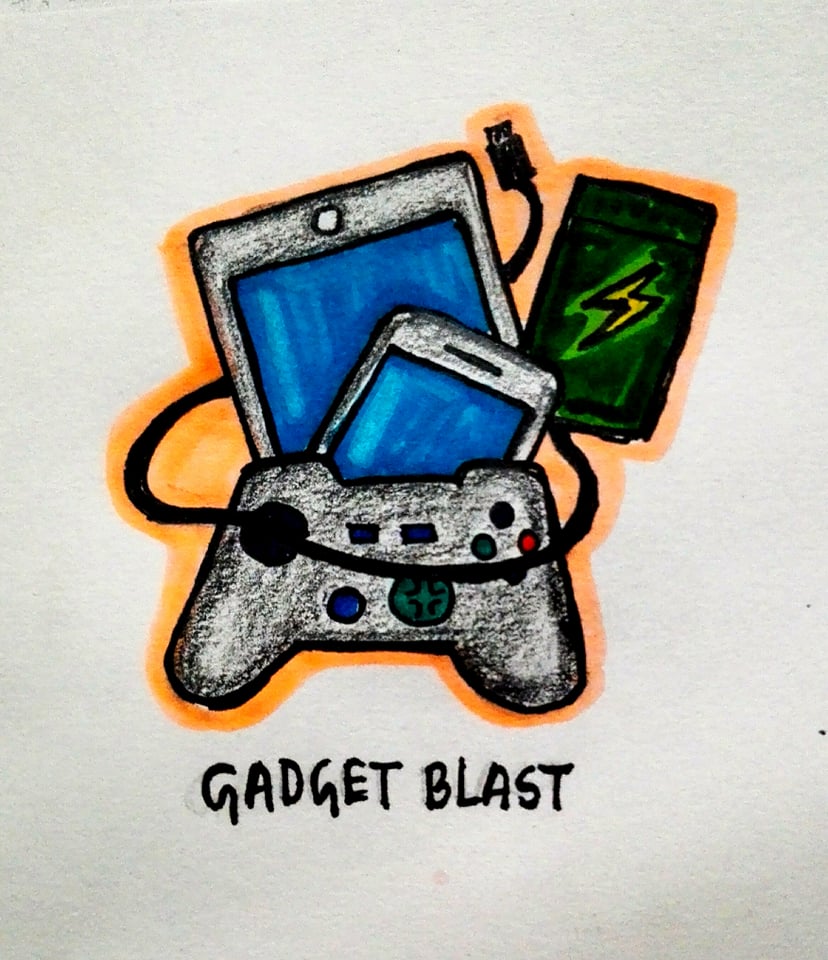 GADGET BLAST